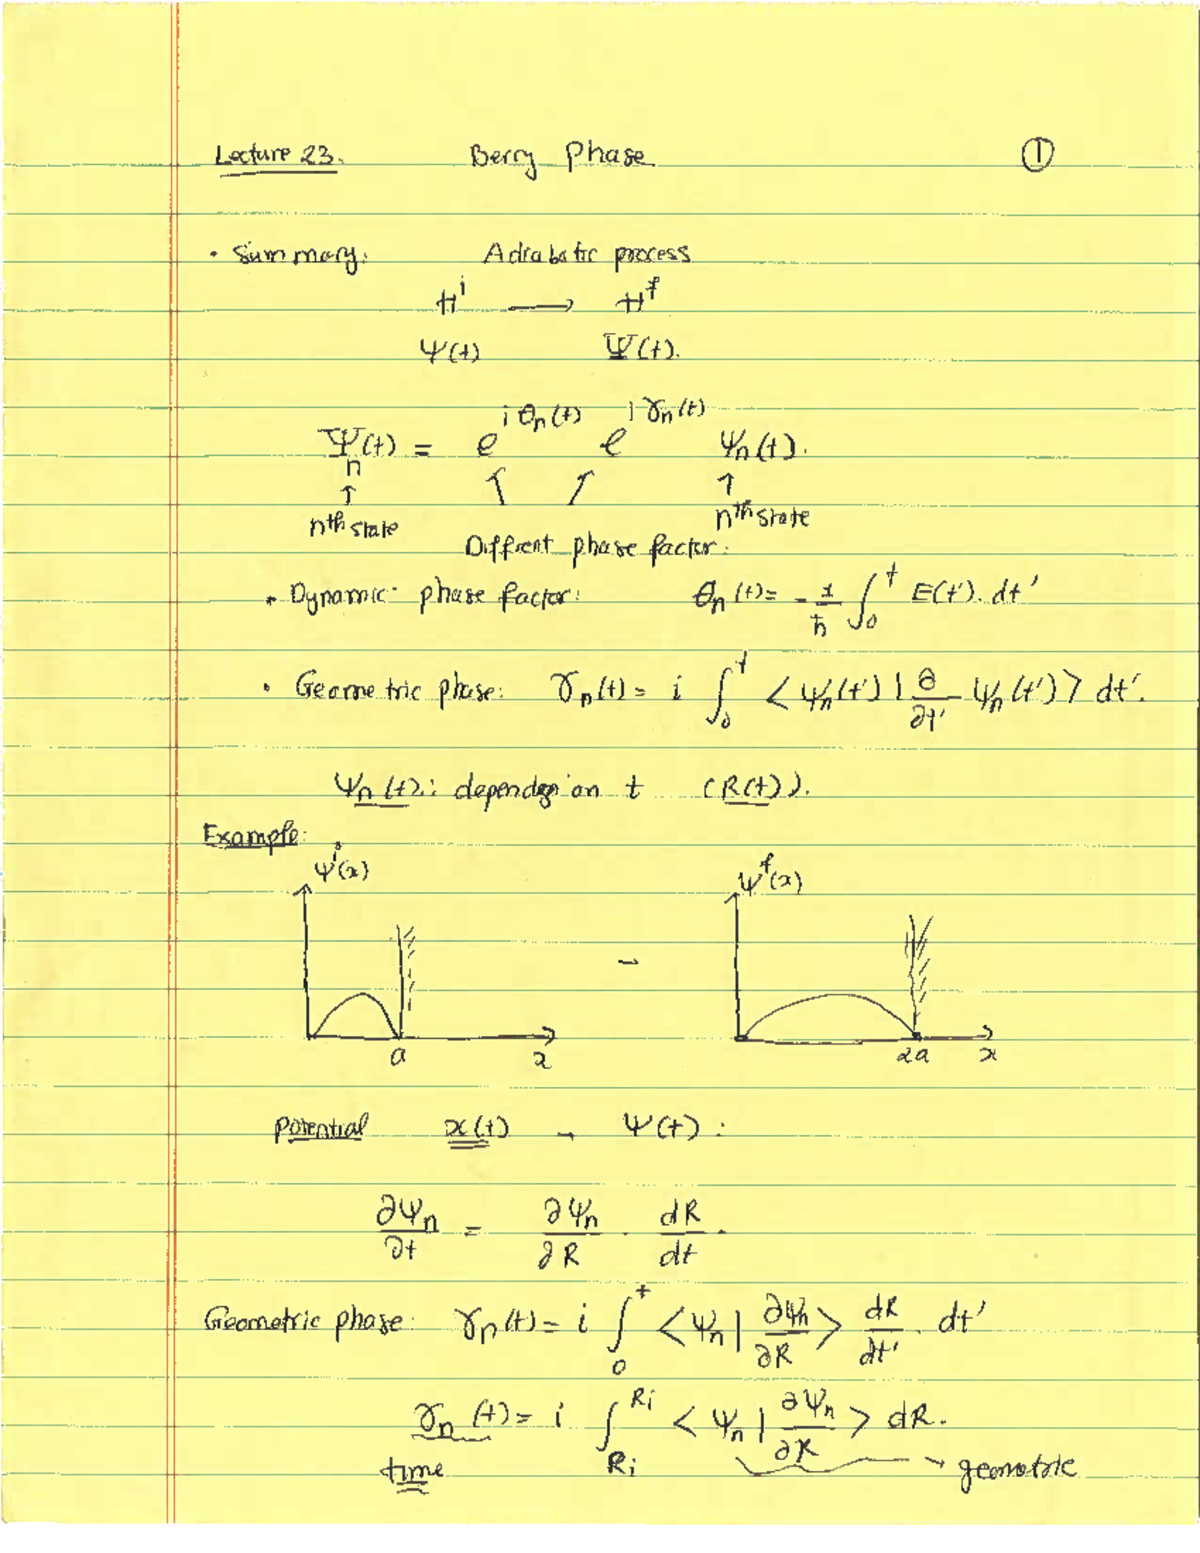 Lecture 23. Berry Phase ①
• Summary: Adiabatic process
Hⁱ ⟶ Hᶠ
ψ(t) Ψ(t).
Ψₙ(t) = e^{iθₙ(t)} e^{iγₙ(t)} ψₙ(t).
↑ ↑ ↑ ↑
nth state nth state
Diffrent phase factor.
• Dynamic phase factor: θₙ(t) = -1/ħ ∫₀ᵗ E(t'). dt'
• Geometric phase: γₙ(t) = i ∫₀ᵗ <ψₙ(t') | ∂/∂t' ψₙ(t')> dt'.
ψₙ(t): on t (R(t)).
Example:
ψⁱ(x) ψᶠ(x)
a x 2a x
Potential x(t) → ψ(t):
∂ψₙ/∂t = ∂ψₙ/∂R · dR/dt.
Geometric phase: γₙ(t) = i ∫₀ᵗ <ψₙ | ∂ψₙ/∂R> dR/dt'. dt'
γₙ(t) = i ∫_{Ri}^{Ri} <ψₙ | ∂ψₙ/∂R> dR.
time → geometric